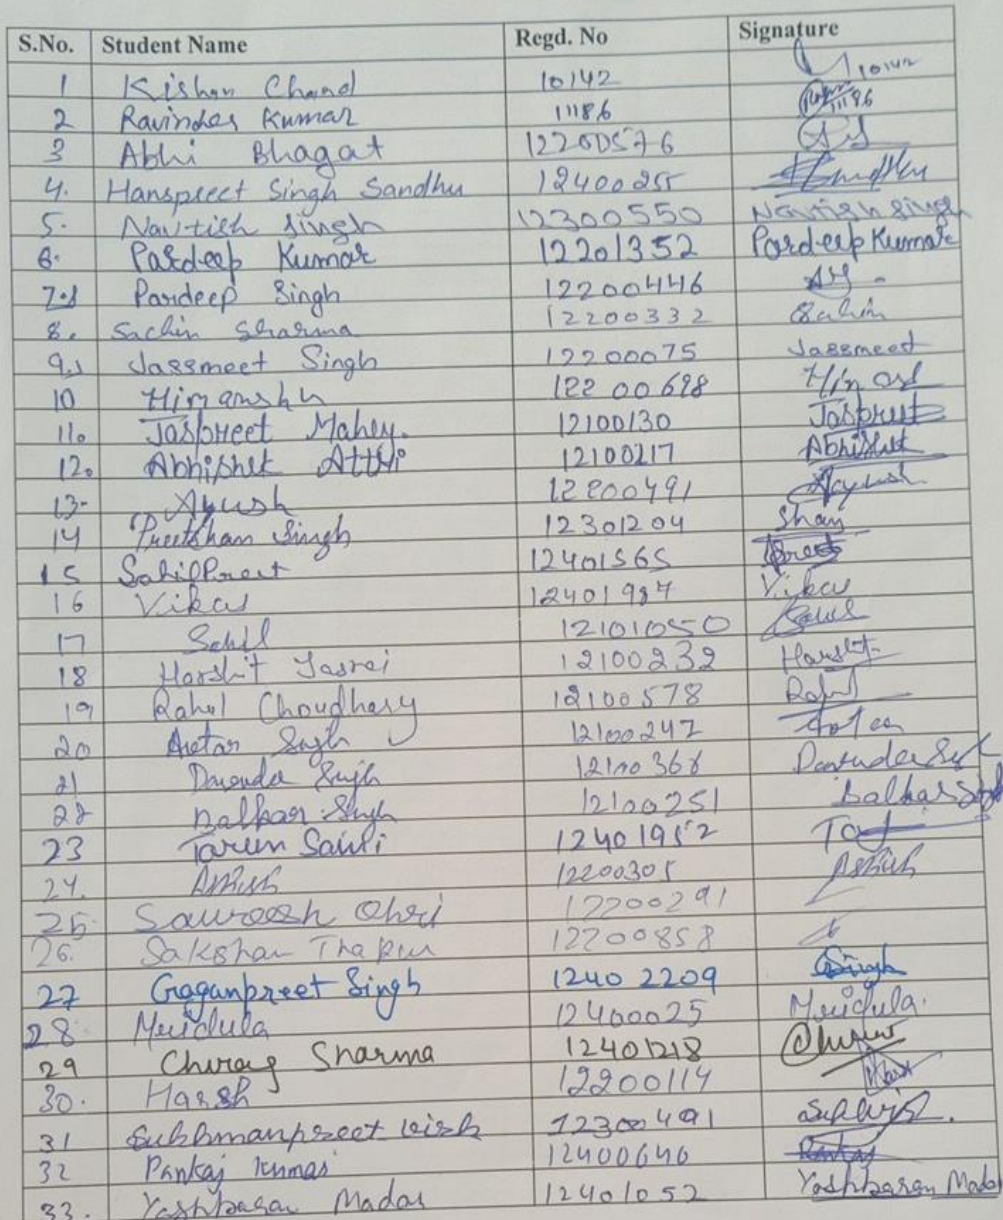 S.No. Student Name Regd. No Signature
1 Kishan Chand 10142 10142
2 Ravinder Kumar 11186 11186
3 Abhi Bhagat 12200576
4. Hanspreet Singh Sandhu 12400255 Sandhu
5. Navtish Singh 12300550 Navtish Singh
6. Pardeep Kumar 12201352 Pardeep Kumar
7. Pardeep Singh 12200446
8. Sachin Sharma 12200332 Sachin
9. Jassmeet Singh 12200075 Jassmeet
10 Himanshu 12200698
11. Jaspreet Mahey. 12100130 Jaspreet
12. Abhishek Attri 12100217 Abhishek
13. Ayush 12200491 Aayush
14 Preetsham Singh 12301204 Sham
15 SahilPreet 12401565 Preet
16 Vikas 12401987 Vikas
17 Sahil 12101050 Sahil
18 Harshit Jasrai 12100232 Harshit
19 Rahul Choudhary 12100578 Rahul
20 Avtar Singh 12100247
21 Davinder Singh 12100368
22 Balkar Singh 12100251 Balkar Singh
23 Tarun Saini 12401952
24. Ashish 12200305 Ashish
25. Sauroosh Ohri 12200291
26. Sakshan Thapur 12200858
27 Gaganpreet Singh 12402209 GSingh
28 Mridula 12400025 Mridula.
29 Chirag Sharma 12401218 Chirag
30. Harsh 12200114 Harsh
31 Sukhmanpreet Virk 12300491
32 Pankaj Kumar 12400646 Pankaj
33. Yashbaran Madar 12401052 Yashbaran Madar